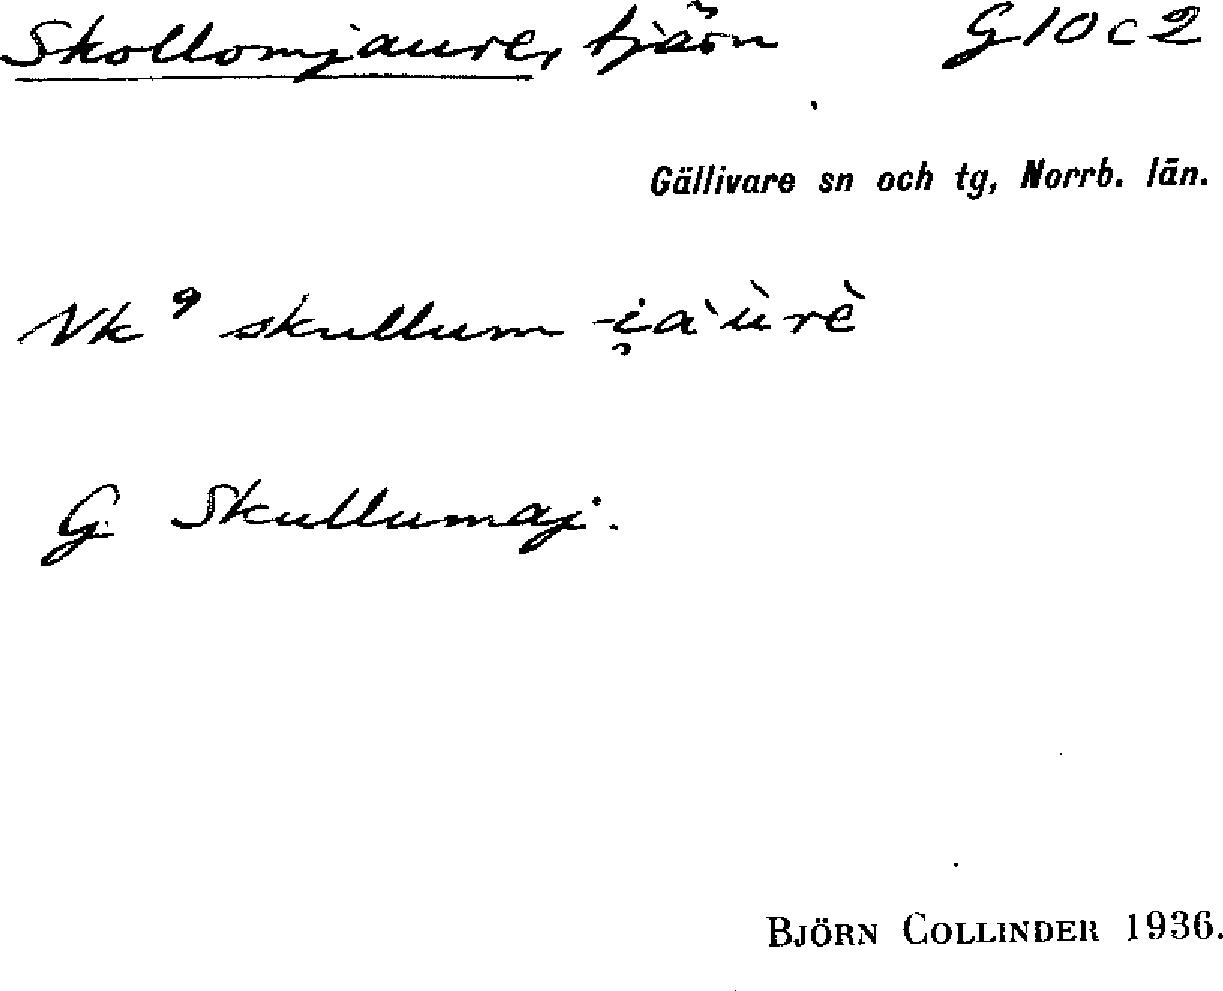 Skollomjaure, tjärn G10c2
Gällivare sn och tg, Norrb. län.
Vk⁹ skullum-i̯a`ùrè
G. Skullumaj.
BJÖRN COLLINDER 1936.